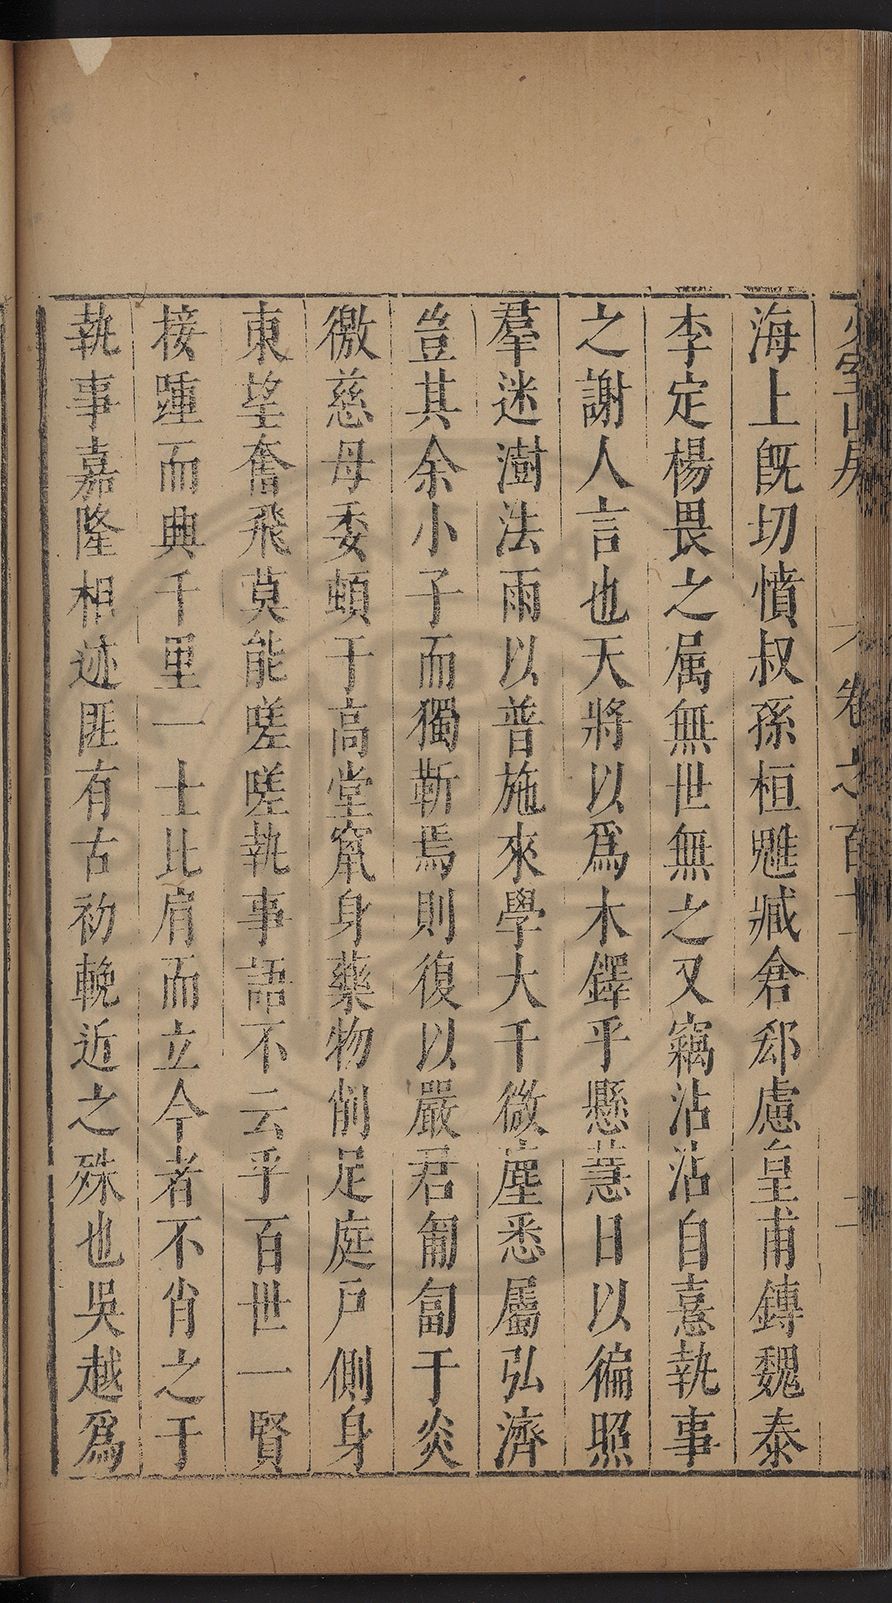 少室山房 卷之百十 二
海上既切憤叔孫桓魋臧倉郄慮皇甫鏄魏泰
李定楊畏之属無世無之又竊沾沾自憙執事
之謝人言也天將以爲木鐸乎懸慧日以徧照
羣迷澍法雨以普施來學大千微塵悉屬弘濟
豈其余小子而獨靳焉則復以嚴君匍匐于炎
徼慈母委頓于高堂窮身藥物削足庭戸側身
東望奮飛莫能嗟嗟執事語不云乎百世一賢
接踵而典千里一士比肩而立今者不肖之于
執事嘉隆相迹匪有古初輓近之殊也吳越爲